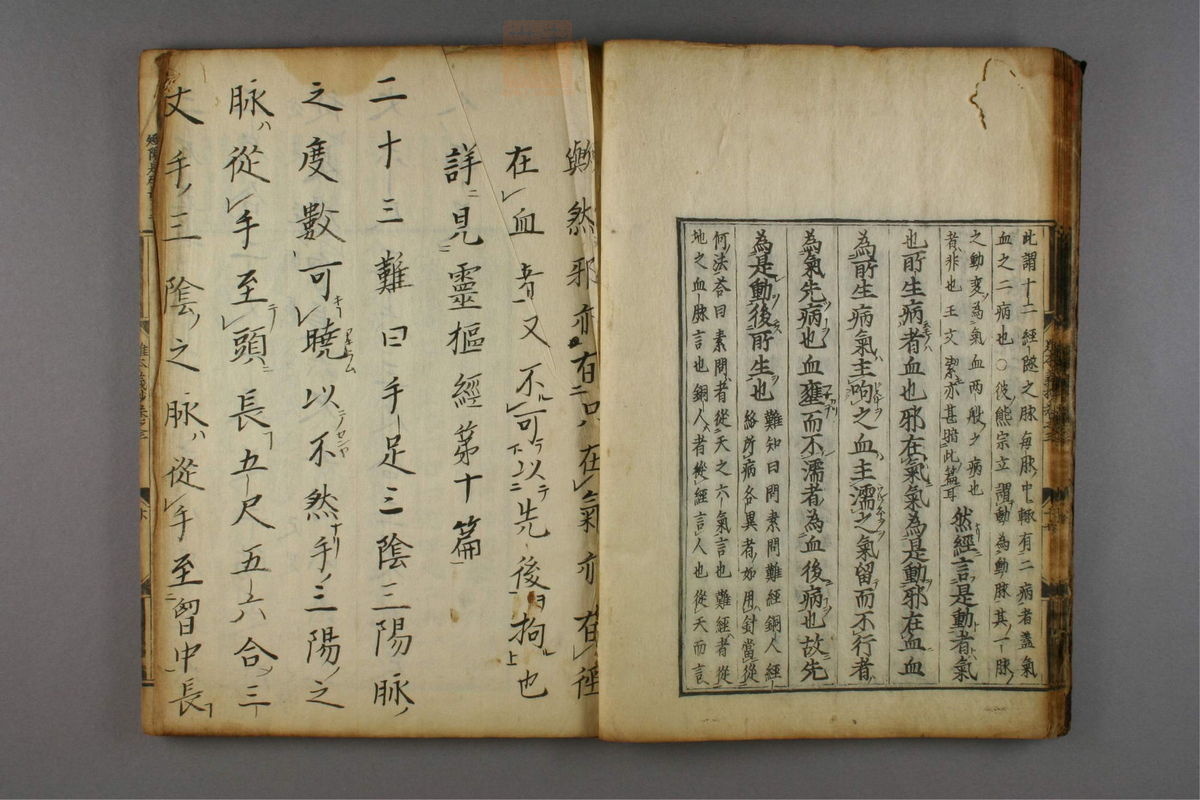 此謂十二經隧之脉每脉中輙有二病者蓋氣
血之二病也〇彼熊宗立謂動為動脉其一脉
之動変為氣血兩般之病也
者非也王文潔亦甚暗此篇耳
然經言是動者氣
也所生病者血也邪在氣氣為是動邪在血血
為所生病氣主呴之血主濡之氣留而不行者
為氣先病也血壅而不濡者為血後病也故先
為是動後所生也
難知曰問素問難經銅人經
絡所病各異者如用針當從
何法荅曰素問者從天之六氣言也難經者從
地之血脉言也銅人者從經言人也從天而言
然邪亦有只在氣亦在
在血者又不可以先後拘也
詳見靈樞經第十篇
二十三難曰手足三陰三陽脉
之度數可曉以不然手三陽之
脉從手至頭長五尺五六合三
丈手三陰之脉從手至胷中長